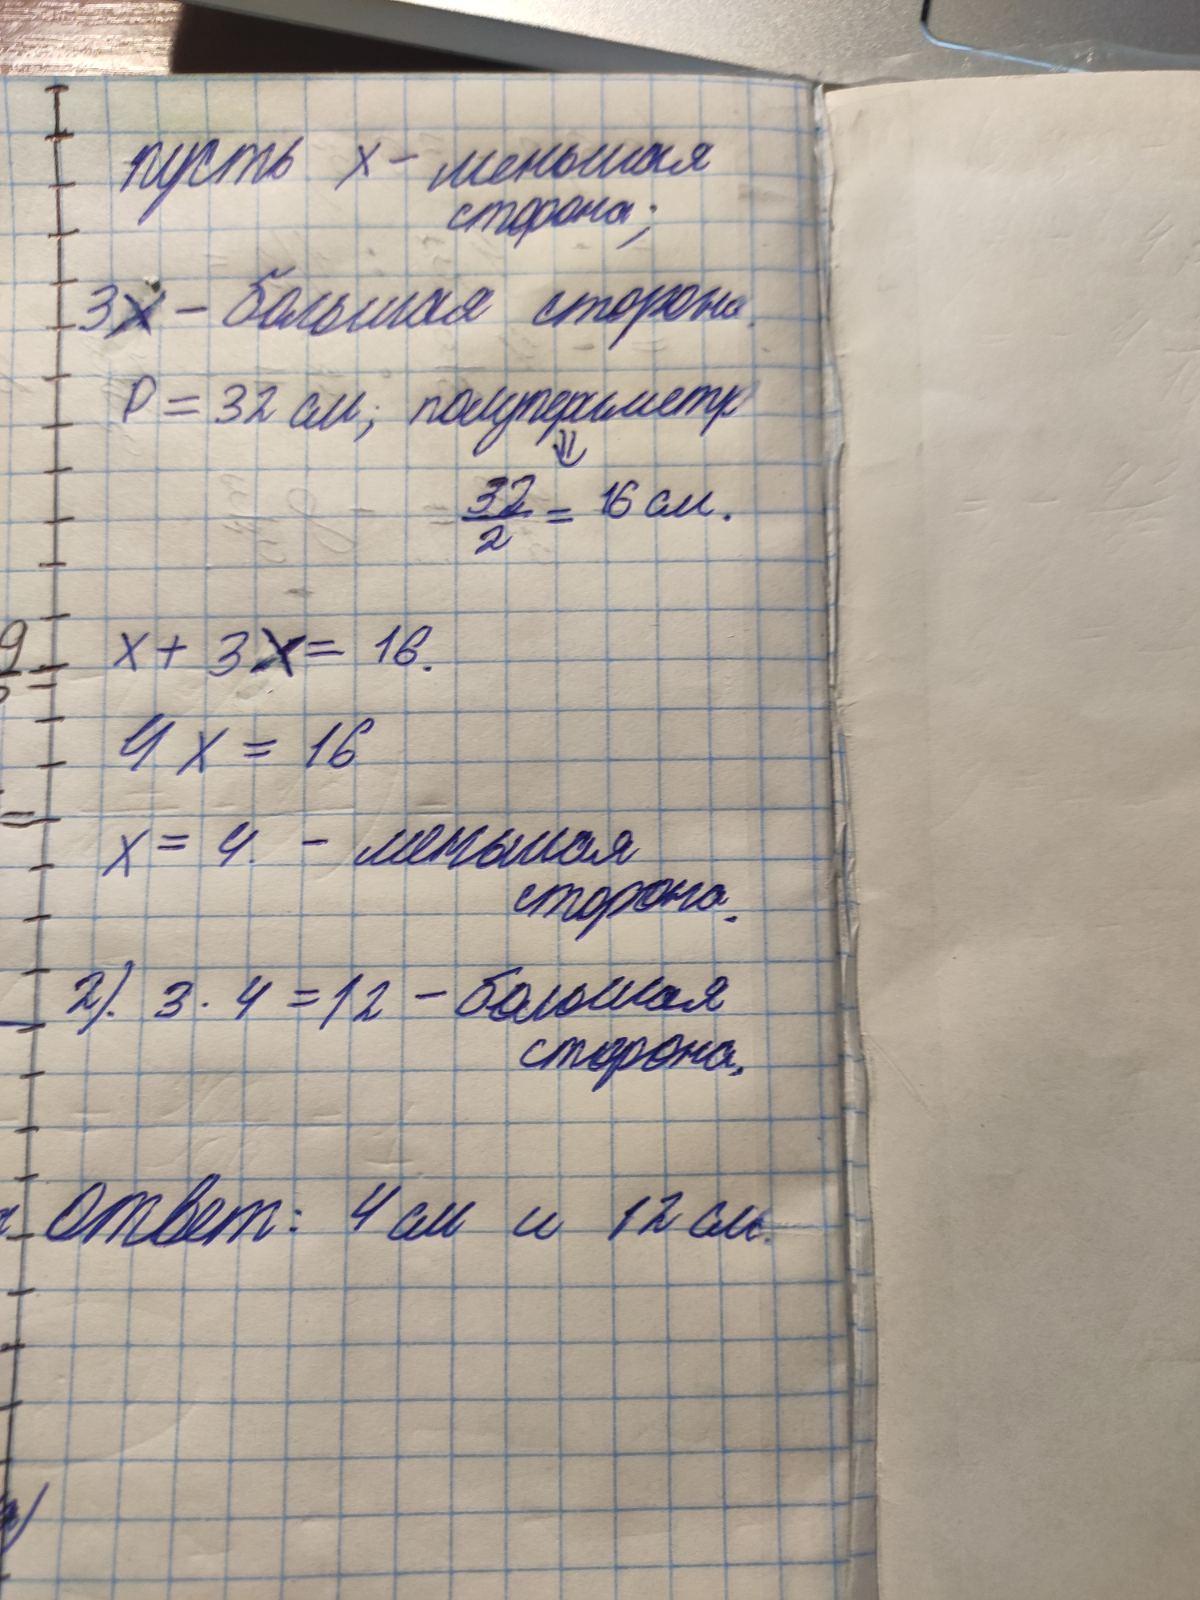 пусть x - меньшая
сторона;
3x - большая сторона.
P = 32 см; полупериметр
⇓
32/2 = 16 см.
x + 3x = 16.
4x = 16
x = 4. - меньшая
сторона.
2). 3 · 4 = 12 - большая
сторона.
Ответ: 4 см и 12 см.